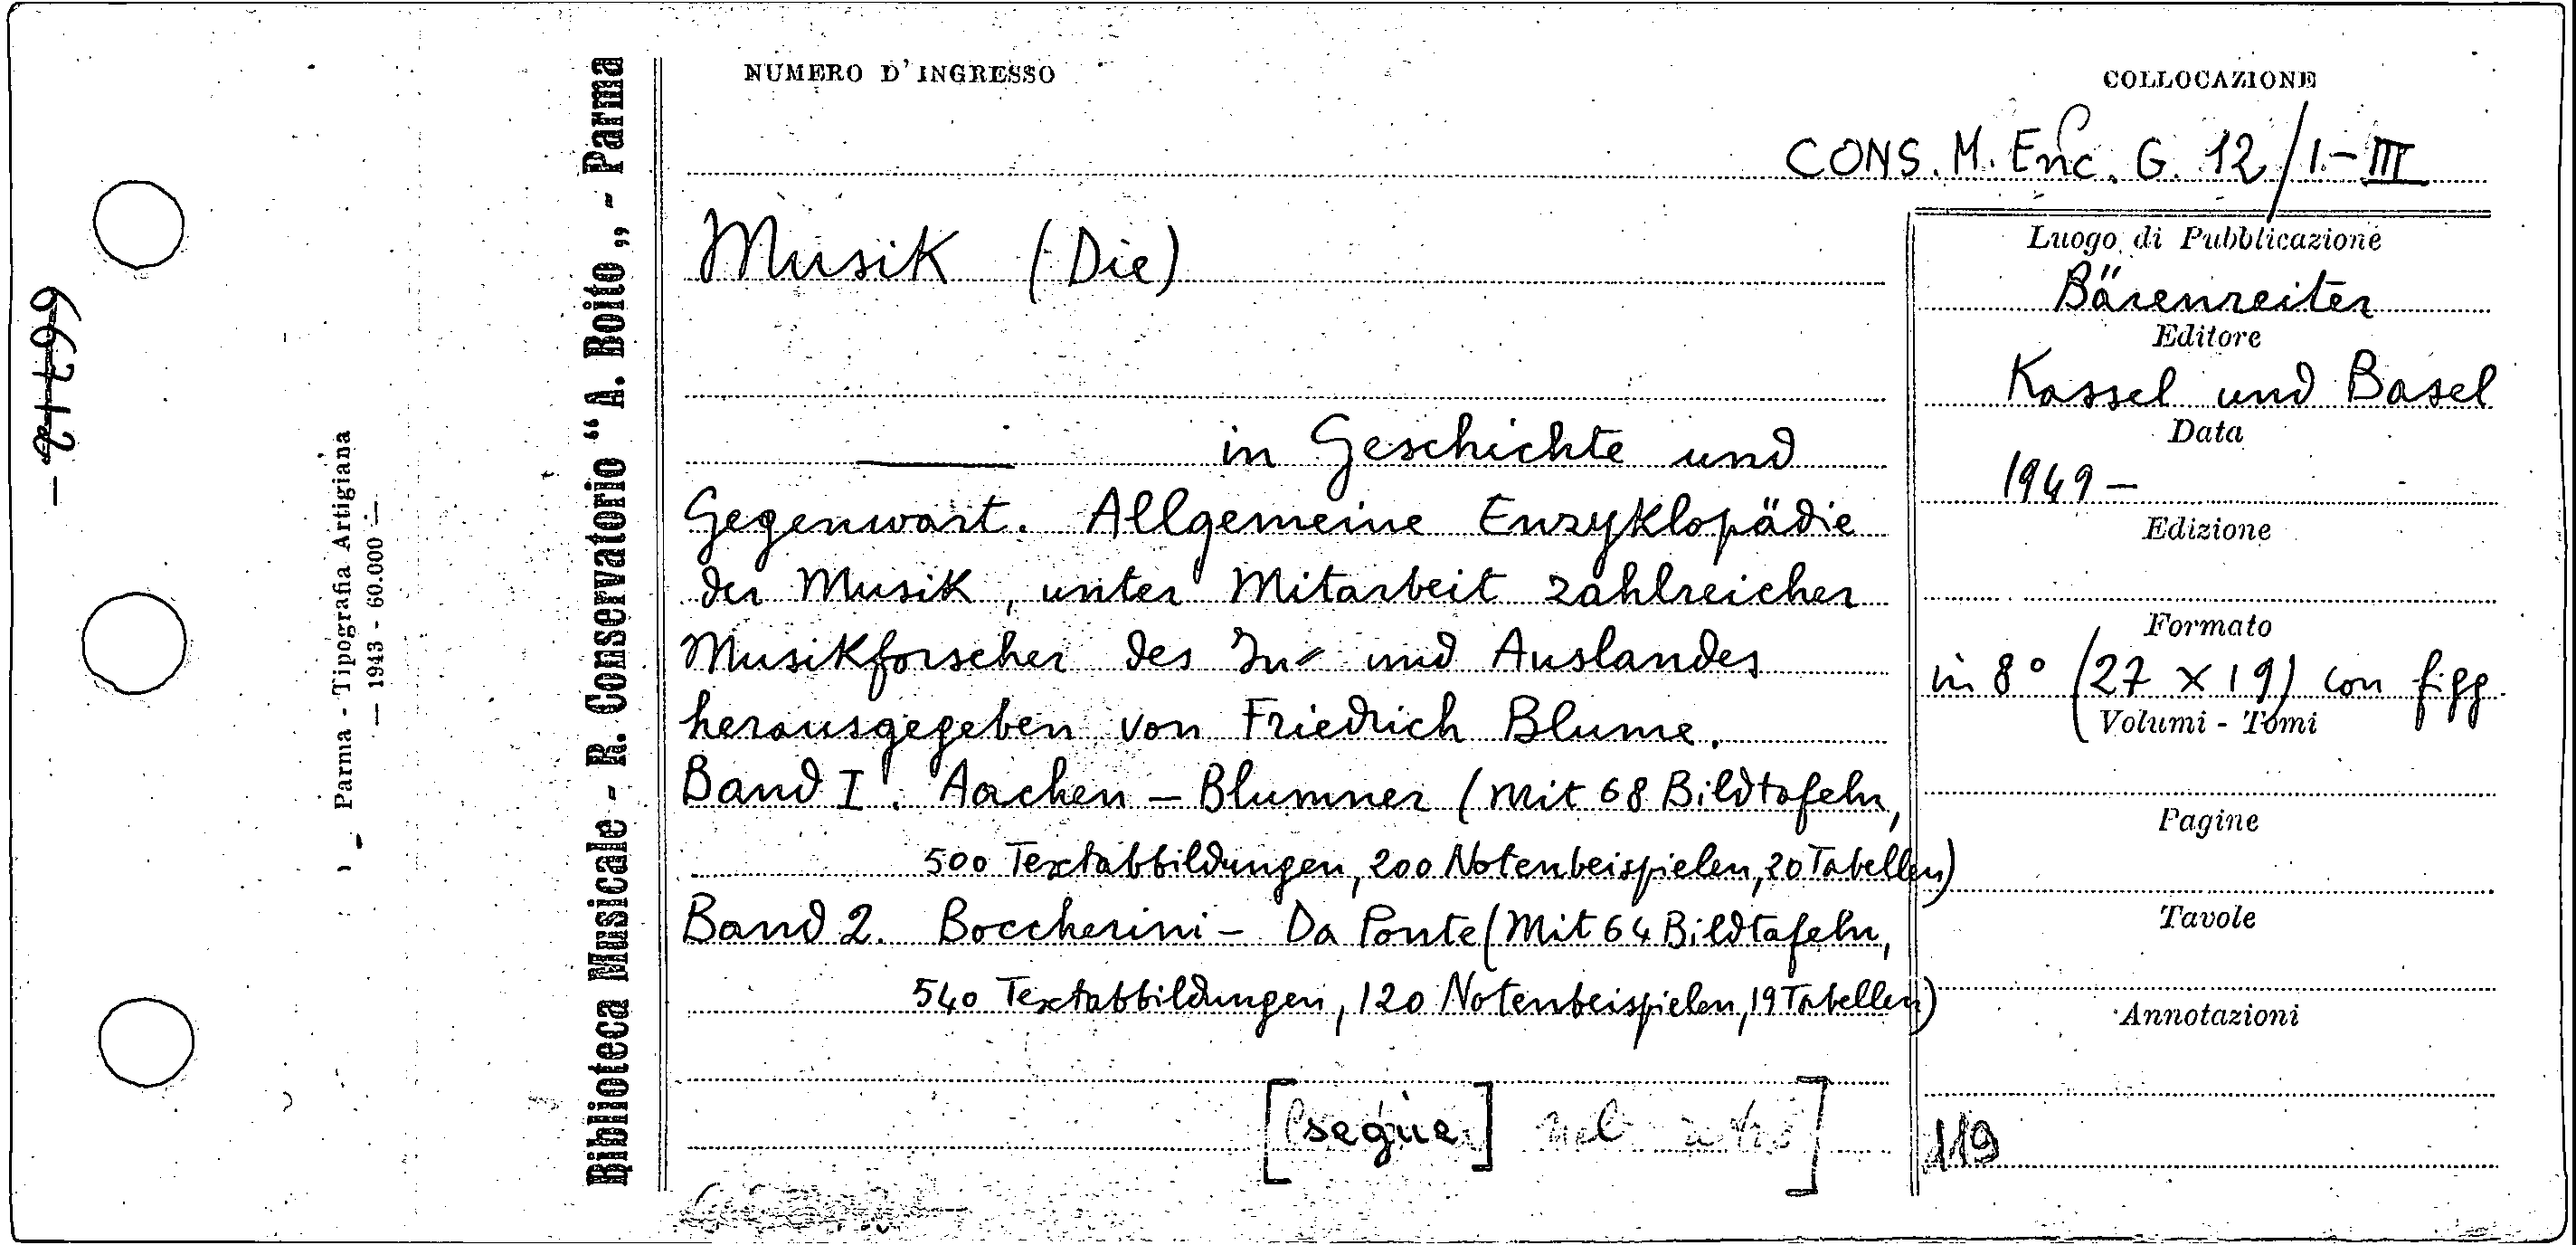 NUMERO D'INGRESSO
COLLOCAZIONE
CONS. M. Enc. G. 12/I-III
Musik (Die)
—— in Geschichte und
Gegenwart. Allgemeine Enzyklopädie
der Musik, unter Mitarbeit zahlreicher
Musikforscher des In- und Auslandes
herausgegeben von Friedrich Blume.
Band I. Aachen – Blumner (Mit 68 Bildtafeln,
500 Textabbildungen, 200 Notenbeispielen, 20 Tabellen)
Band 2. Boccherini – Da Ponte (Mit 64 Bildtafeln,
540 Textabbildungen, 120 Notenbeispielen, 19 Tabellen)
[segue]
Luogo di Pubblicazione
Bärenreiter
Editore
Kassel und Basel
Data
1949 –
Edizione
Formato
in 8° (27 x 19) con figg.
Volumi - Tomi
Pagine
Tavole
Annotazioni
119
Biblioteca Musicale - R. Conservatorio "A. Boito„ - Parma
Parma - Tipografia Artigiana
— 1943 - 60.000 —